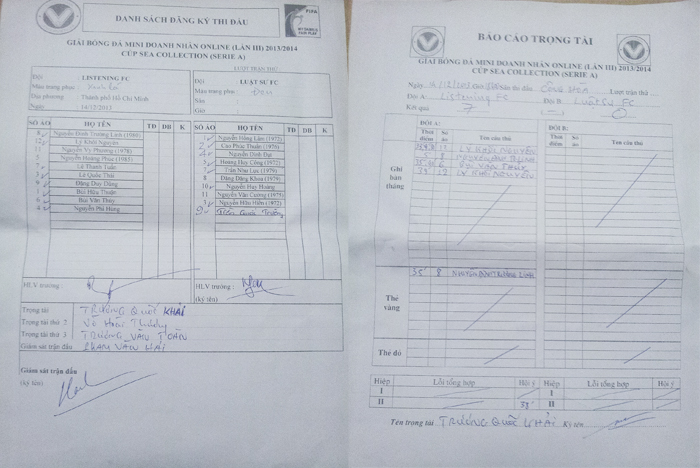 DANH SÁCH ĐĂNG KÝ THI ĐẤU
GIẢI BÓNG ĐÁ MINI DOANH NHÂN ONLINE (LẦN III) 2013/2014
CÚP SEA COLLECTION (SERIE A)
LƯỢT TRẬN THỨ
Đội : LISTENING FC
Màu trang phục:
Địa phương : Thành phố Hồ Chí Minh
Ngày : 14/12/2013
Đội : LUẬT SƯ FC
Màu trang phục: Đen
Sân:
Giờ:
SỐ ÁO HỌ TÊN TĐ DB K
8 Nguyễn Đình Trường Linh (1986)
12 Lý Khôi Nguyên
11 Nguyễn Vy Phương (1978)
5 Nguyễn Hoàng Phúc (1983)
7 Lê Thanh Tuấn
3 Lê Quốc Thái
9 Đặng Duy Dũng
1 Bùi Hữu Thuận
6 Bùi Văn Thủy
4 Nguyễn Phi Hùng
SỐ ÁO HỌ TÊN TĐ DB K
Nguyễn Hồng Lâm (1972)
2 Cao Phúc Thuận (1976)
4 Nguyễn Đình Đạt
5 Hoàng Huy Công (1972)
7 Trần Như Lực (1979)
8 Đặng Đăng Khoa (1979)
10 Nguyễn Huy Hoàng
11 Nguyễn Văn Cương (1975)
Nguyễn Hữu Hiền (1972)
9 Trần Quốc Trưởng
HLV trưởng :
HLV trưởng :
(ký tên)
Trọng tài TRƯƠNG QUỐC KHẢI
Trọng tài thứ 2 Võ Hoài Thương
Trọng tài thứ 3 TRƯƠNG VĂN TOÀN
Giám sát trận đấu PHẠM VĂN HẢI
Giám sát trận đấu
(ký tên)
FIFA
MY GAME IS FAIR PLAY
BÁO CÁO TRỌNG TÀI
GIẢI BÓNG ĐÁ MINI DOANH NHÂN ONLINE (LẦN III) 2013/2014
CÚP SEA COLLECTION (SERIE A)
Ngày Giờ Sân thi đấu Lượt trận thứ
Đội A: Listening FC Đội B: Luật Sư FC
Kết quả 7 (—) 0
ĐỘI A: ĐỘI B:
Thời điểm Số áo Tên cầu thủ Thời điểm Số áo Tên cầu thủ
Ghi bàn thắng
12 LÝ KHÔI NGUYÊN
5 8
6
39' 12 LÝ KHÔI NGUYÊN
Thẻ vàng
35' 8 NGUYỄN ĐÌNH TRƯỜNG LINH
Thẻ đỏ
Hiệp Lỗi tổng hợp Hội ý Hiệp Lỗi tổng hợp Hội ý
I I
II 38' II
Tên trọng tài TRƯƠNG QUỐC KHẢI Ký tên